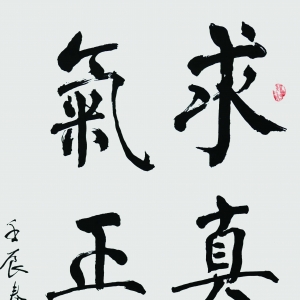 求真
氣正
壬辰春